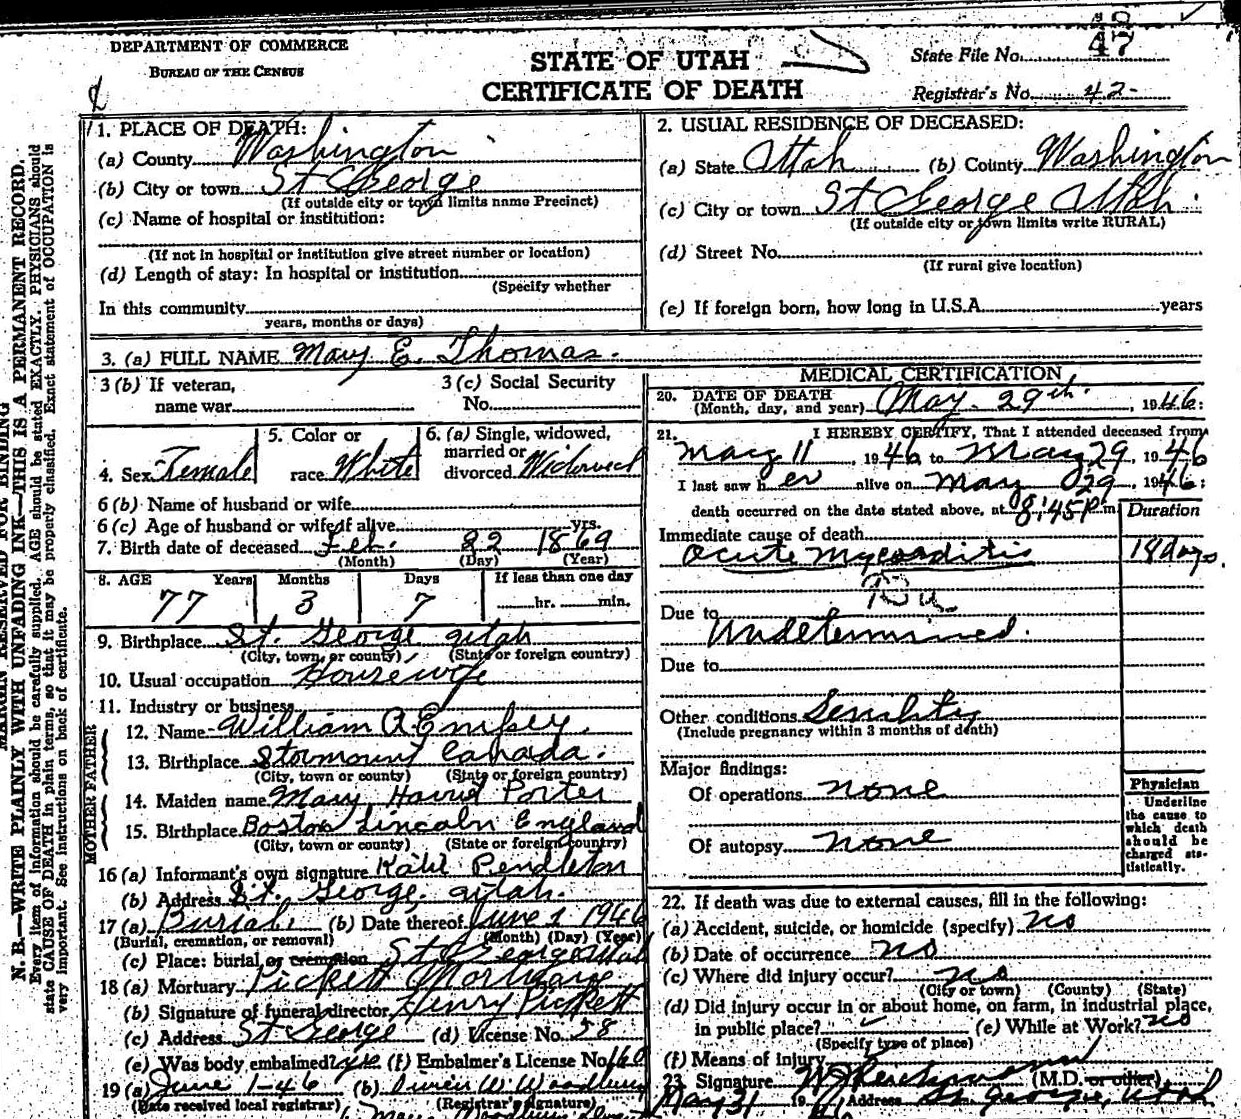 DEPARTMENT OF COMMERCE
BUREAU OF THE CENSUS
STATE OF UTAH
CERTIFICATE OF DEATH
State File No. 47
Registrar's No. 42
MARGIN RESERVED FOR BINDING
N. B.—WRITE PLAINLY WITH UNFADING INK—THIS IS A PERMANENT RECORD.
Every item of information should be carefully supplied. AGE should be stated EXACTLY. PHYSICIANS should
state CAUSE OF DEATH in plain terms, so that it may be properly classified. Exact statement of OCCUPATION is
very important. See instructions on back of certificate.
1. PLACE OF DEATH:
(a) County Washington
(b) City or town St George
(If outside city or town limits name Precinct)
(c) Name of hospital or institution:
(If not in hospital or institution give street number or location)
(d) Length of stay: In hospital or institution
(Specify whether
In this community
years, months or days)
2. USUAL RESIDENCE OF DECEASED:
(a) State Utah (b) County Washington
(c) City or town St George Utah.
(If outside city or town limits write RURAL)
(d) Street No.
(If rural give location)
(e) If foreign born, how long in U.S.A. years
3. (a) FULL NAME Mary E. Thomas.
3 (b) If veteran,
name war
3 (c) Social Security
No.
4. Sex Female
5. Color or
race White
6. (a) Single, widowed,
married or
divorced Widowed
6 (b) Name of husband or wife
6 (c) Age of husband or wife if alive yrs.
7. Birth date of deceased Feb. 22 1869
(Month) (Day) (Year)
8. AGE Years Months Days If less than one day
77 3 7 hr. min.
9. Birthplace St. George Utah
(City, town, or county) (State or foreign country)
10. Usual occupation Housewife
11. Industry or business
FATHER
12. Name William A Empey.
13. Birthplace Stormount Canada.
(City, town or county) (State or foreign country)
MOTHER
14. Maiden name Mary Porter
15. Birthplace Boston Lincoln England
(City, town or county) (State or foreign country)
16 (a) Informant's own signature Pendleton
(b) Address St. George Utah.
17 (a) Burial. (b) Date thereof June 1 1946
(Burial, cremation, or removal) (Month) (Day) (Year)
(c) Place: burial or cremation St George Utah
18 (a) Mortuary Pickett Mortuary
(b) Signature of funeral director Henry Pickett
(c) Address St George (d) License No. 58
(e) Was body embalmed? yes (f) Embalmer's License No. 160
19 (a) June 1-46 (b) W. Woodbury
(Date received local registrar) (Registrar's signature)
MEDICAL CERTIFICATION
20. DATE OF DEATH
(Month, day, and year) May 29th. , 1946:
21. I HEREBY CERTIFY, That I attended deceased from
May 11, 1946 to May 29, 1946
I last saw her alive on May 29, 1946:
death occurred on the date stated above, at 8:45P m. Duration
Immediate cause of death
Acute Myocarditis 18 days.
Due to
Undetermined.
Due to
Other conditions Senility
(Include pregnancy within 3 months of death)
Major findings:
Of operations none
Of autopsy none
Physician
Underline the cause to which death should be charged statistically.
22. If death was due to external causes, fill in the following:
(a) Accident, suicide, or homicide (specify) no
(b) Date of occurrence no
(c) Where did injury occur? no
(City or town) (County) (State)
(d) Did injury occur in or about home, on farm, in industrial place,
in public place? (e) While at Work? no
(Specify type of place)
(f) Means of injury
23. Signature (M.D. or other)
May 31 19 Address St George, Utah